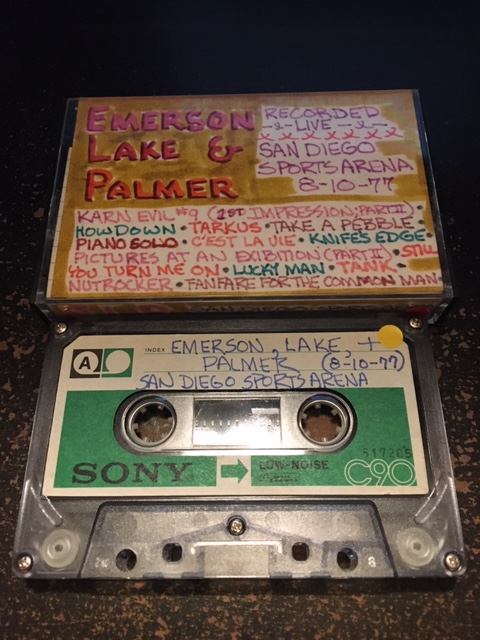 EMERSON
LAKE &
PALMER
RECORDED
LIVE
SAN DIEGO
SPORTS ARENA
8-10-77
KARN EVIL #9 (1ST IMPRESSION; PART II) •
HOWDOWN • TARKUS • TAKE A PEBBLE •
PIANO SOLO • C'EST LA VIE • KNIFE'S EDGE •
PICTURES AT AN EXIBITION (PART II) • STILL
YOU TURN ME ON • LUCKY MAN • TANK •
NUTROCKER • FANFARE FOR THE COMMON MAN •
A
INDEX
EMERSON, LAKE, +
PALMER (8-10-77)
SAN DIEGO SPORTS ARENA
SONY
LOW-NOISE
C90